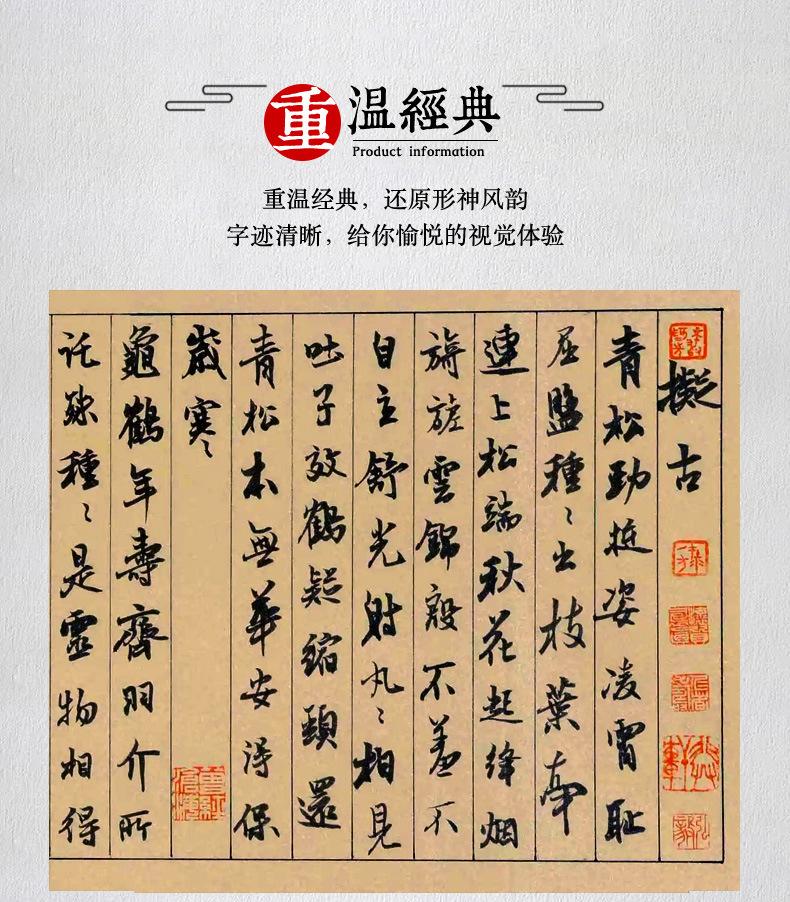 重温經典
Product information
重温经典，还原形神风韵
字迹清晰，给你愉悦的视觉体验
擬古
青松勁挺姿凌霄耻
屈盤種々出枝葉牽
連上松端秋花起絳烟
旖旎雲錦殷不羞不
自立舒光射丸々柏見
吐子效鶴疑縮頸還
青松本無華安得保
歲寒々
龜鶴年壽齊羽介所
託殊種々是靈物相得